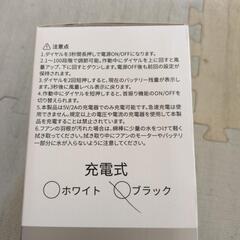 ⚠ 注意点
1.ダイヤルを3秒間長押しで電源ON/OFFになります。
2.1〜100段階で調節可能。作動中ダイヤルを上に回すと風
量アップ、下に回すとダウンします。電源OFF後も前回の設定
が保持されます。
3.ダイヤルを2回短押しすると、現在のバッテリー残量が表示し
ます。3秒後に風量レベル表示に戻ります。
4.作動中にダイヤルを短押しすると、首振り機能のON/OFFを
切り替えられます。
5.本製品は5V/2Aの充電器でのみ充電可能です。急速充電は
できません。規定以上の電圧や電流の充電器を使用して本製
品を充電しないでください。
6.フアンの羽根が汚れた場合は、綿棒に少量の水をつけて軽く
拭き取ってください。拭き取り中にフアンのモーターやバッテリ
ー部分に水が入らないようにご注意ください。
充電式
○ホワイト ○ブラック